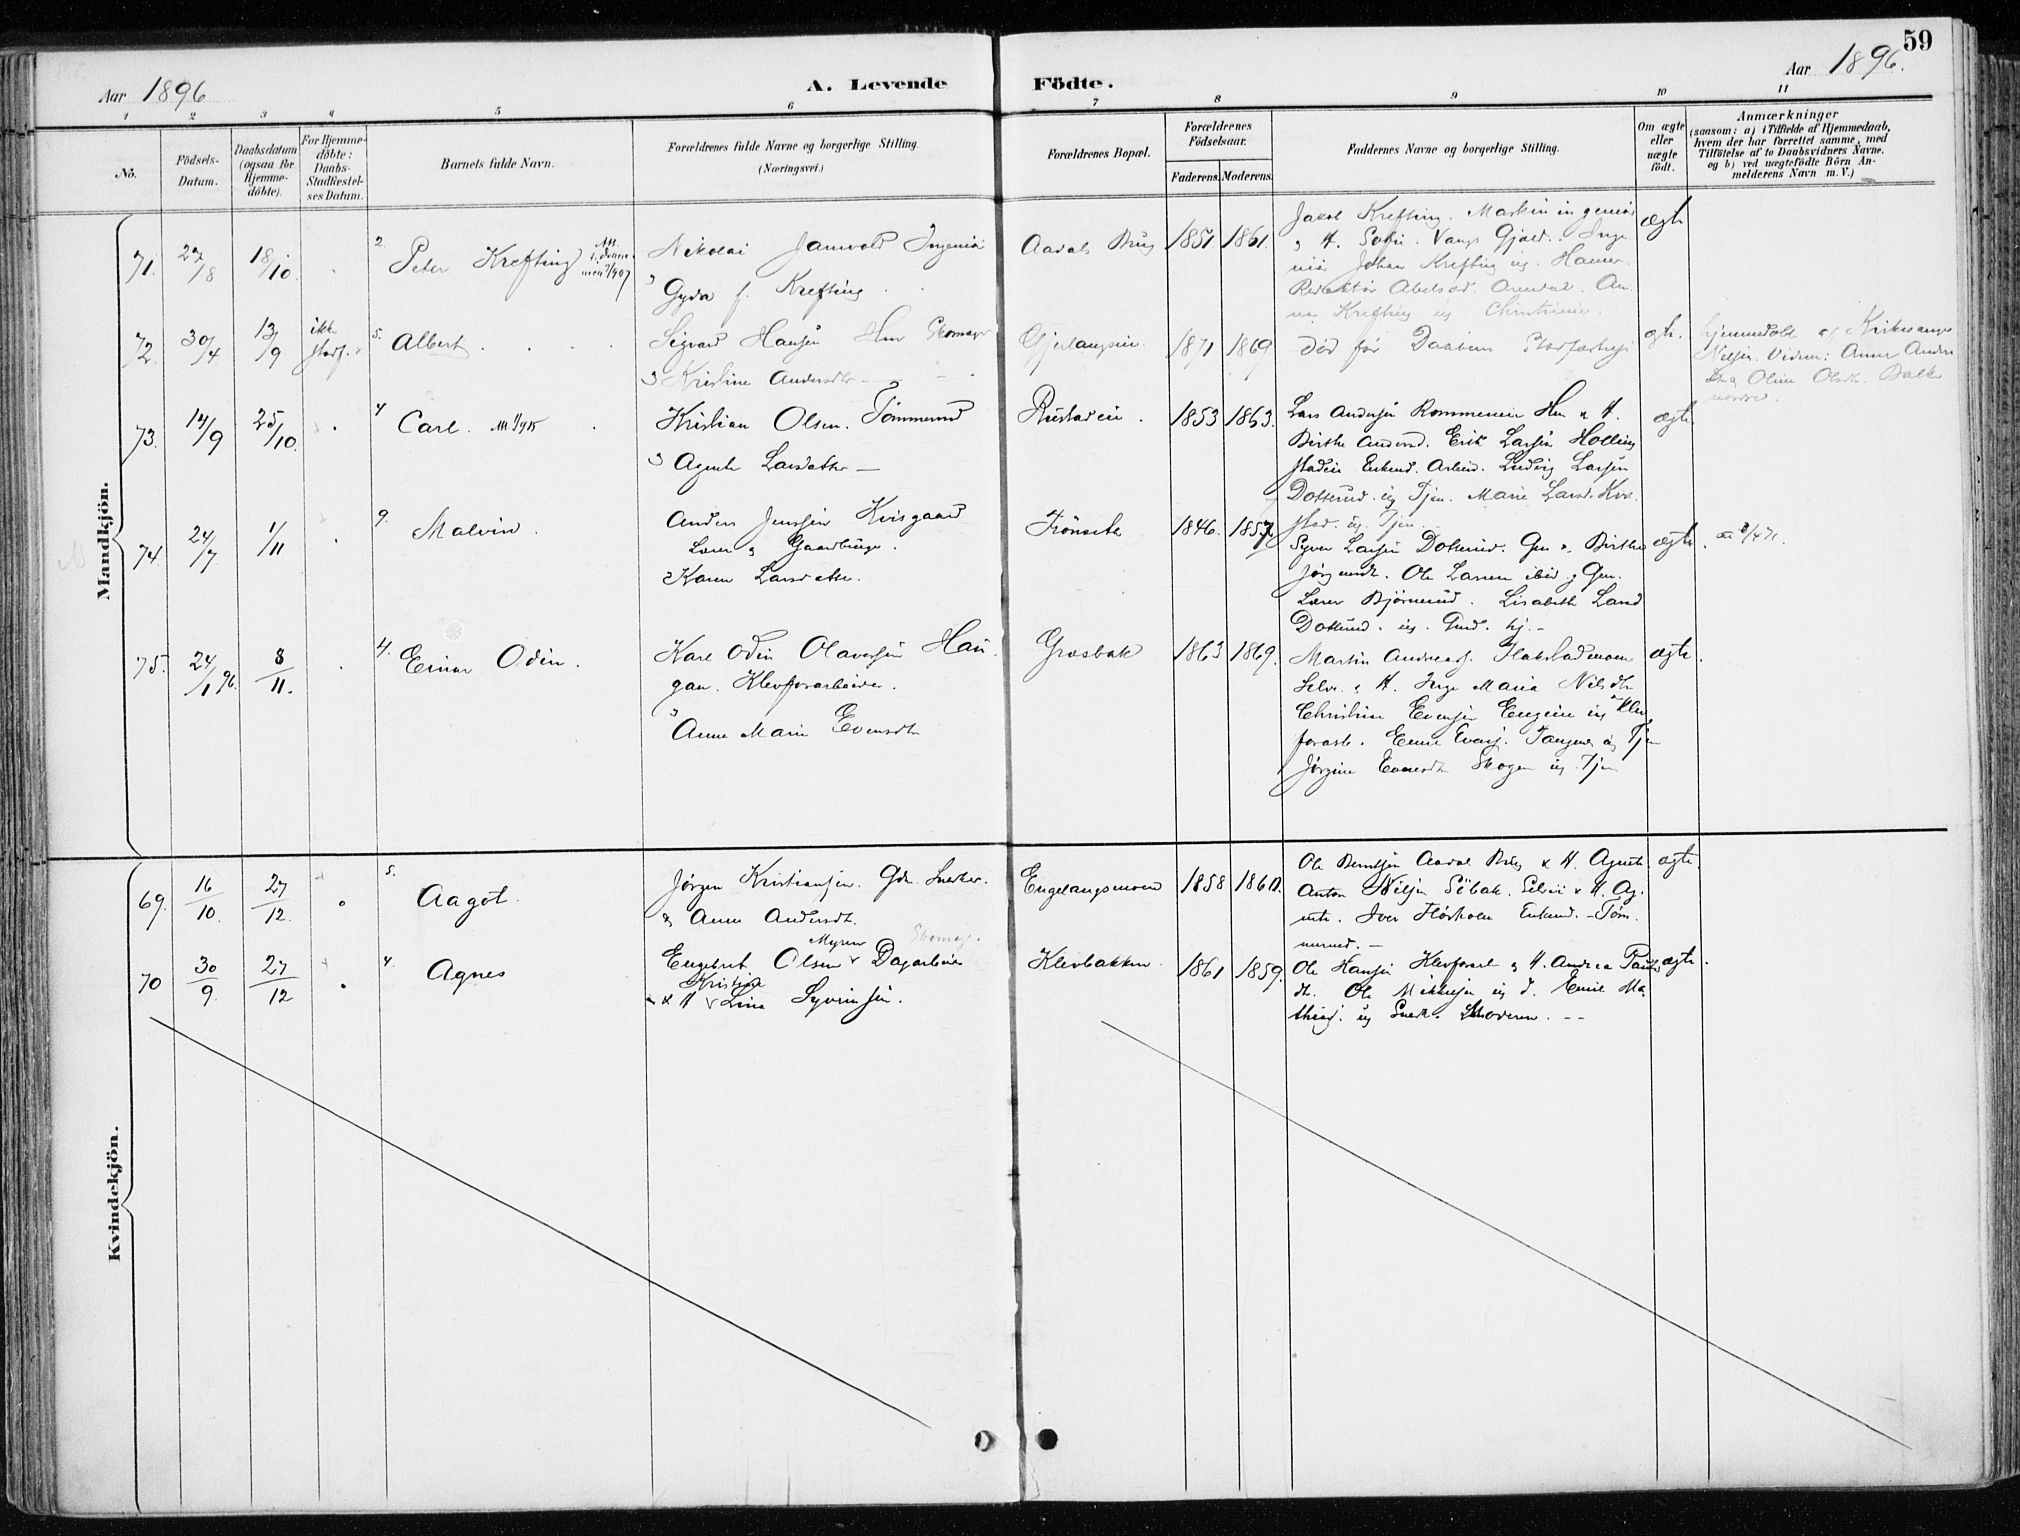 59
Aar 1896
A. Levende
Födte.
Aar 1896.
1 2 3 4 5 6 7 8 9 10 11
No.
Födsels-
Datum.
Daabsdatum
(ogsaa for
Hjemme-
döbte).
For Hjemme-
döbte:
Daabs-
Stadfæstel-
ses Datum.
Barnets fulde Navn.
Forældrenes fulde Navne og borgerlige Stilling.
(Næringsvei.)
Forældrenes Bopæl.
Forældrenes
Födselsaar.
Faderens.
Moderens.
Faddernes Navne og borgerlige Stilling.
Om ægte
eller
uægte
födt.
Anmærkninger
(saasom: a) i Tilfælde af Hjemmedaab,
hvem der har forrettet samme, med
Tilföielse af to Daabsvidners Navne.
og b) ved uægtefödte Börn An-
melderens Navn m. V.)
Mandkjön.
71. 27/8 18/10. 2. Peter Krefting
Nikolai Ingeniør
& Gyda f. Krefting
Aadals Brug 1851 1861.
Jakob Krefting. Maskiningeniør
& H. Sofie. Vangs Gjæld. Inge-
niør Johan Krefting ug. Hamer.
Redaktør Abelsed. Arendal. An-
na Krefting ug. Christiania.
ægte
72. 30/4 13/9 ikke stadf. 5. Albert
Sigvard Hansen Hm Skomager
& Kristine Andersdtr
Gjerlangseie. 1871 1869.
Død før Daabens Stadfæstelse
ægte.
hjemmedøbt af Kirkesanger
Nilsen. Vidner: Anne Anders-
dtr & Oline Olsdtr. Bakke
nordre.
73. 14/9 25/10. 4 Carl.
Kristian Olsen. Tømmermd
& Agnete Larsdatter
Rustadeie. 1853 1863.
Lars Andersen Rommeneie Hm & H.
Birthe Andersd. Erik Larsen Holling
stadeie Enkemd. Arbeid. Ludvig Larsen
Dokkerud. ug Tjen. Marie Larsd. Kve-
stad. ug. Tjen.
ægte.
74. 24/7 1/11 9. Malvin.
Anders Jensen Kvisgaard
Lærer & Gaardbruger.
& Karen Larsdatter.
Trönseth 1846. 1857
Syver Larsen Dokkerud. Gm. & Birthe
Jörgensdt. Ole Larsen ibid. & Gm.
Lærer Bjørnerud. Lisabeth Larsd
Dokkerud. ug. Gmd. hj.
ægte.
75. 24/1 96. 8/11. 4. Einar Odin.
Karl Odin Olavesen Hau-
gan. Kleoforarbeider.
& Anne Marie Evensdtr
Græsbak 1863 1869.
Martin Andreass. Flakstadmoen
Selv. & H. Inge Maria Nilsdtr
Christine Evensen Eugenie ug Kleo
forarb. Emil Evens. Tangnes ug Tjen
Jørgine Evensdtr Skogen ug. Tjen
ægte.
Kvindekjön.
69. 16/10. 27/12. 5. Aagot.
Jörgen Kristiansen. Gdr. Snedker.
& Anne Andersdt.
Engelangsmoen 1858 1860.
Ole Berntsen Aadal Brug & H. Agnete
Anton Nilsen Søbak. Selveier & H. Ag-
nete. Iver Enkemd. Tøm-
mermd.
ægte.
70 30/9. 27/12 4. Agnes
Myren Skomag.
Engebret Olsen Dagarbeider
Kristine
& H Lina Syvrinsen.
Kleobakken. 1861 1859.
Ole Hansen Kleoforarb & H. Andrea Pauls-
dt. Ole Mikkelsen ug d. Emil Ma-
thias. ug Snedk. & Moderen.
ægte.